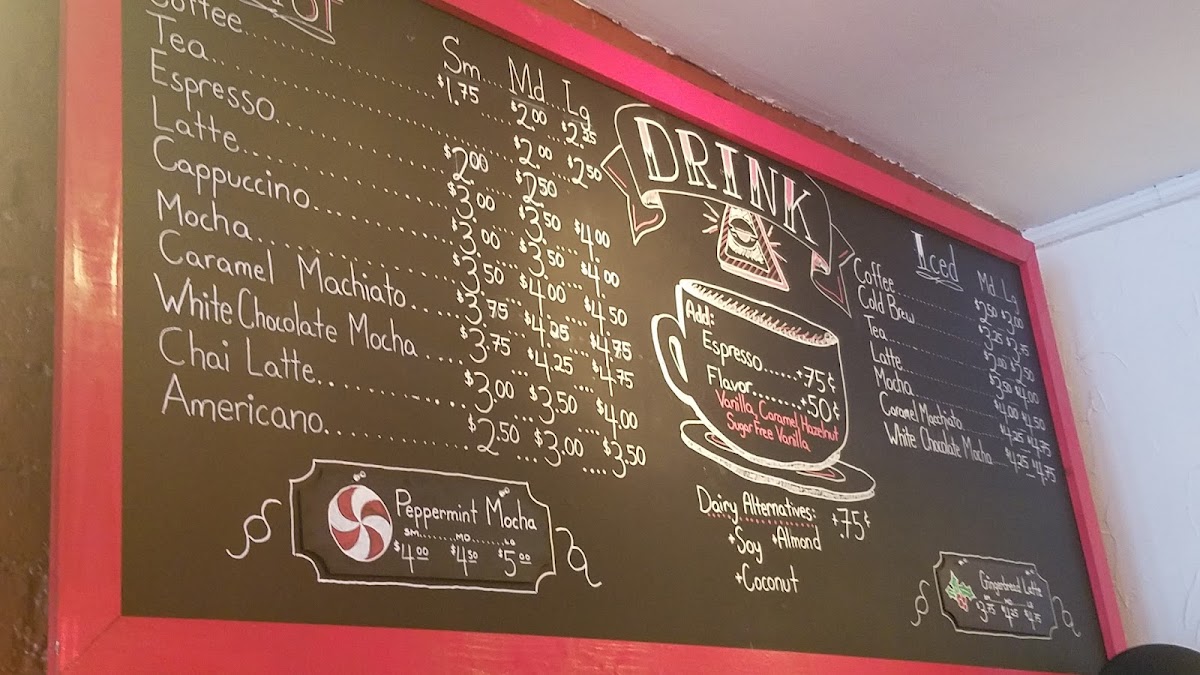 Sm....Md...Lg
Coffee........$1.75 $2.00 $2.25
Tea........$2.00...$2.50
Espresso........$2.00...$2.50
Latte........$3.00...$3.50...$4.00
Cappuccino........$3.00...$3.50...$4.00
Mocha........$3.50...$4.00...$4.50
Caramel Machiato....$3.75...$4.25...$4.75
White Chocolate Mocha....$3.75...$4.25...$4.75
Chai Latte........$3.00 $3.50 $4.00
Americano........$2.50...$3.00....$3.50
Peppermint Mocha
SM........MD........LG
$4.00 $4.50 $5.00
DRINK
Add:
Espresso......+75¢
Flavor........+50¢
Vanilla, Caramel, Hazelnut
Sugar Free Vanilla
Dairy Alternatives: +75¢
+Soy +Almond
+Coconut
Iced
Md. Lg
Coffee........$2.50 $3.00
Cold Brew........$3.25 $3.75
Tea........$2.00 $2.50
Latte........$3.50 $4.00
Mocha........$4.00 $4.50
Caramel Macchiato....$4.25 $4.75
White Chocolate Mocha....$4.25 $4.75
Gingerbread Latte
SM MD LG
$3.75 $4.25 $4.75